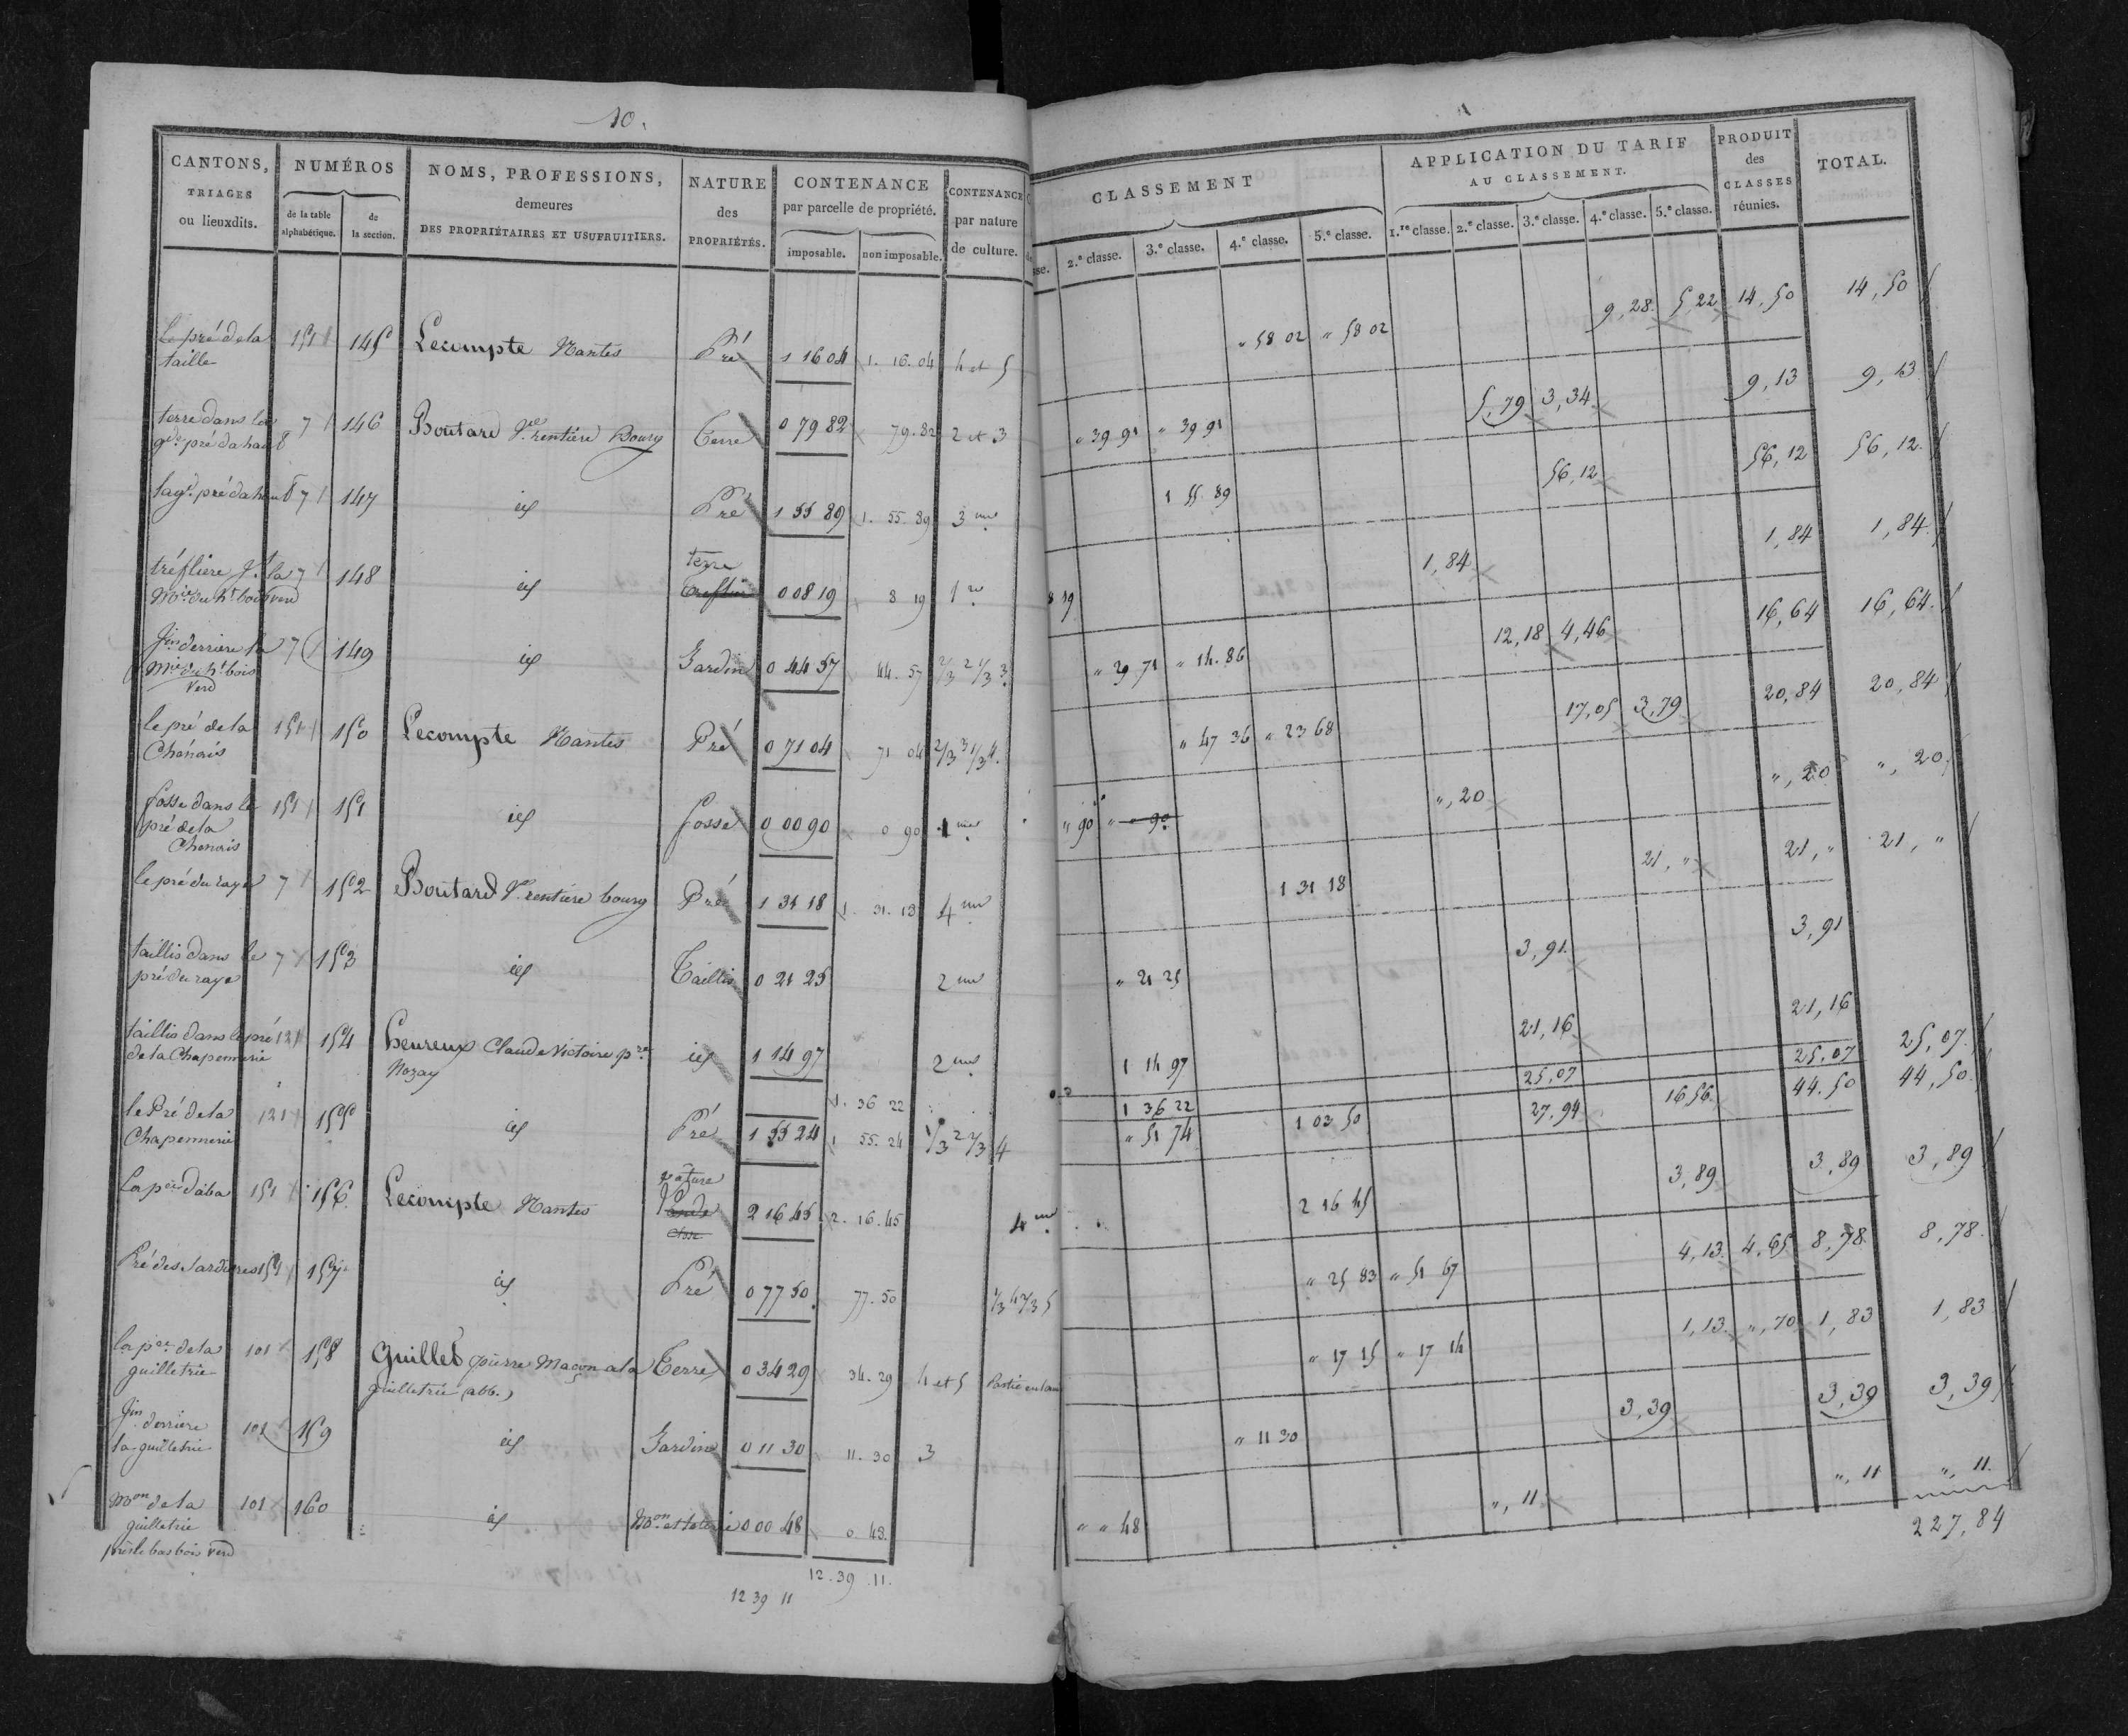 10.
CANTONS, TRIAGES ou lieuxdits. NUMÉROS de la table alphabétique. de la section. NOMS, PROFESSIONS, demeures DES PROPRIÉTAIRES ET USUFRUITIERS. NATURE des PROPRIÉTÉS. CONTENANCE par parcelle de propriété. imposable. non imposable. CONTENANCE par nature de culture.
CLASSEMENT 2.e classe. 3.e classe. 4.e classe. 5.e classe. APPLICATION DU TARIF AU CLASSEMENT. 1.re classe. 2.e classe. 3.e classe. 4.e classe. 5.e classe. PRODUIT des CLASSES réunies. TOTAL.
Le pré de la 151 145 Lecompte Nantes Pré 1 16 04 1. 16. 04 4 et 5 " 58 02 " 58 02 9,28 5,22 14,50 14,50
taille
terre dans la 7 146 Boutard Ve rentière Bourg Terre 0 79 82 79. 82 2 et 3 " 39 91 " 39 91 5,79 3,34 9,13 9,13
gde pré da haut
la gd pré da haut 7 147 id 1 55 89 Pré 1. 55. 89 3 me 1 55 89 56,12 56,12 56,12
tréflière la 7 148 id terre 0 08 19 8 19 1re 8 19 1,84 1,84 1,84
Mie du ht bois verd
Jin derriere la 7 149 id Jardin 0 44 57 44. 57 2/3 2 1/3 3 " 29 71 " 14. 86 12,18 4,46 16,64 16,64
Mie du ht bois
verd
le pré de la 151 150 Lecompte Nantes Pré 0 71 04 71 04 2/3 3 1/3 4. " 47 36 " 23 68 17,05 3,79 20,84 20,84
Chénais
fosse dans le 151 151 id fosse 0 00 90 0 90 1ere " 90 " 90 ",20 ",20 ",20
pré de la
Chenais
le pré du raye 7 152 Boutard Ve rentière bourg Pré 1 31 18 1. 31. 18 4 me 1 31 18 21," 21," 21,"
taillis dans le 7 153 id Taillis 0 21 25 2 me " 21 25 3,91 3,91
pré du raye
taillis dans le pré 121 154 heureux Claude Victoire pre id 1 14 97 2 me 1 14 97 21,16 21,16
de la Chapennerie Nozay
1. 36 22 1 36 22 25,07 25,07 25,07
le Pré de la 121 155 id Pré 1 55 24 1 55. 24 1/3 2 2/3 4 " 51 74 1 03 50 27,94 16 56 44.50 44,50
Chapennerie
La pce daba 151 156 Lecompte Nantes pature 2 16 45 2. 16. 45 4 me 2 16 45 3,89 3,89 3,89
Lande
Pré des Jardines 151 157 id Pré 0 77 50 77. 50 1/3 4 2/3 5 " 25 83 " 51 67 4,13 4,65 8,78 8,78
la pce de la 101 158 Guillet pierre Maçon a la Terre 0 34 29 34. 29 4 et 5 " 17 15 " 17 14 1,13 ",70 1,83 1,83
guilletrie guilletrie (abb.)
Jin derriere 101 159 id Jardin 0 11 30 11. 30 3 " 11 30 3,39 3,39 3,39
la guilletrie
Mon de la 101 160 id Mon 0 00 48 0 48. " " 48 ",11 ",11 ",11
guilletrie
près le bas bois verd
12 39 11 12. 39. 11. 227,84